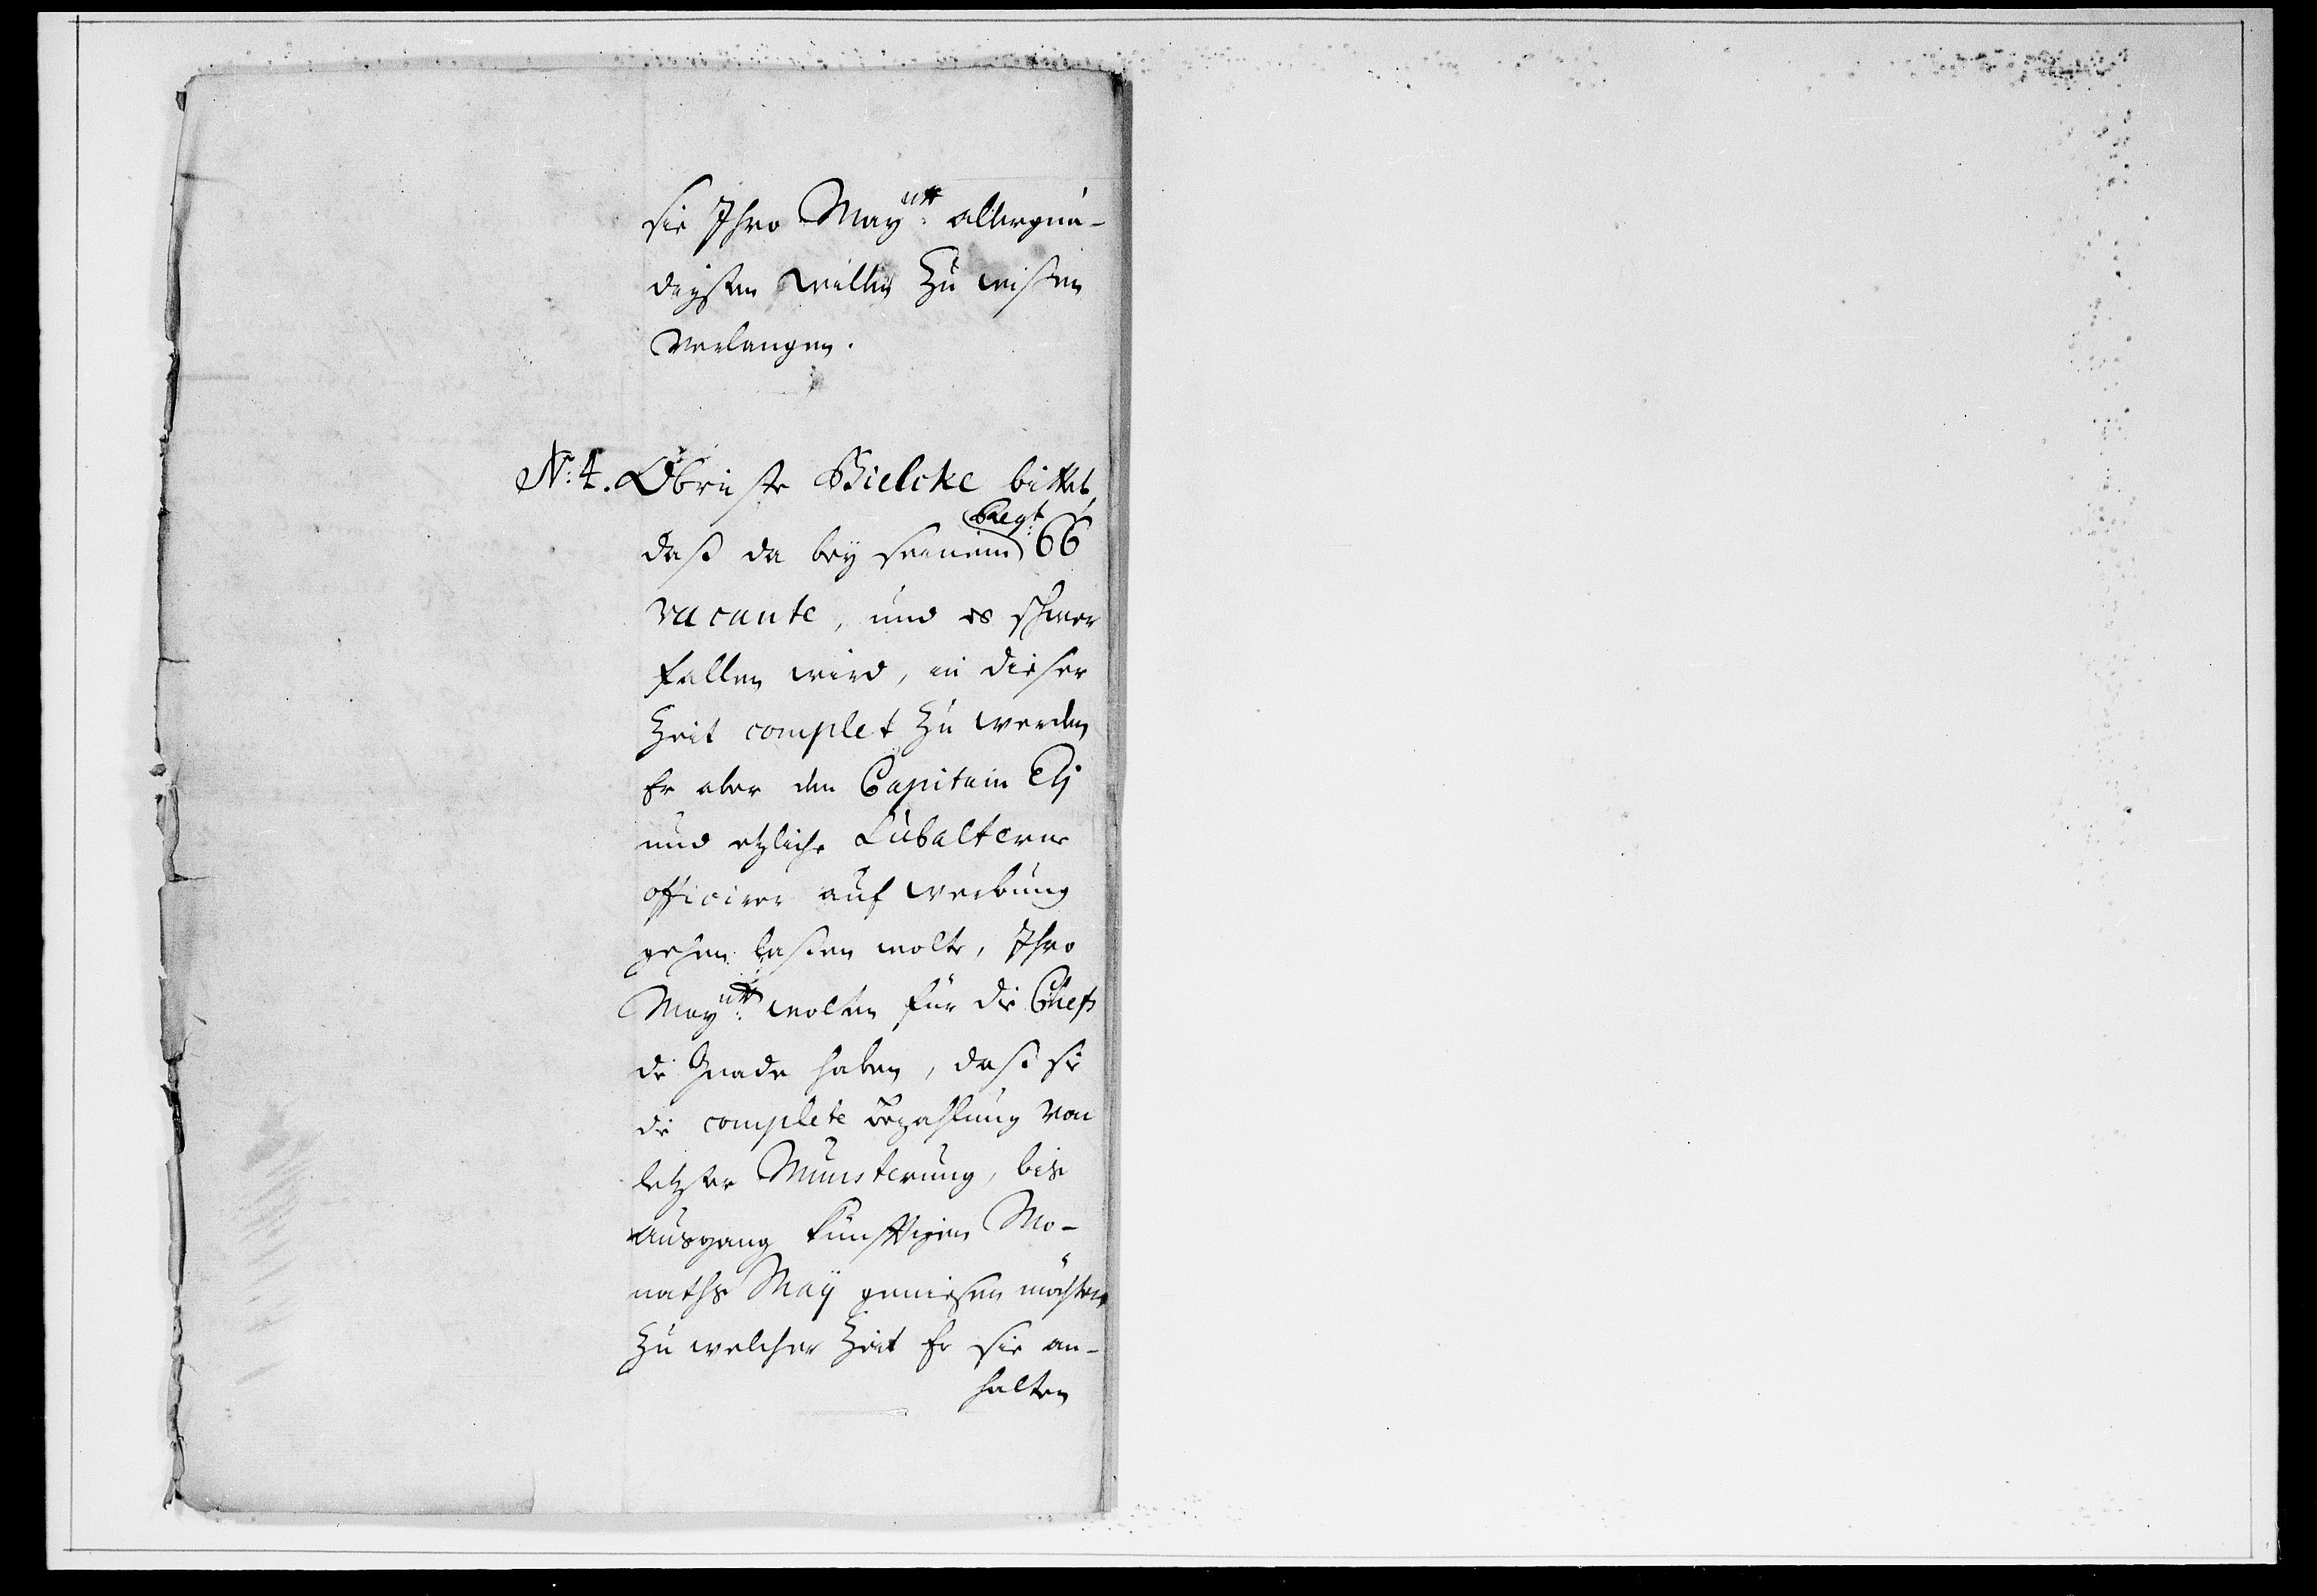 sie Ihro Mayᵗᵗ: allergnä-
digsten willen zu wißen
verlangen.
N: 4. Obriste Bielcke bittet,
daß da bey seinem Regt: 66
vacante, und es schwer
fallen wird, in dieser
Zeit complet zu werden
Er aber den Capitain Ely
und etzliche Subalterne
officirer auf werbung
gehen laßen wolte, Ihro
Mayᵗᵗ: wolten für die Chefs
die Gnade haben, daß sie
die complete bezahlung von
letzter Munsterung, bis
Ausgang künfftigen Mo-
naths Maÿ genießen möchten
zu welcher Zeit Er sie an-
halten